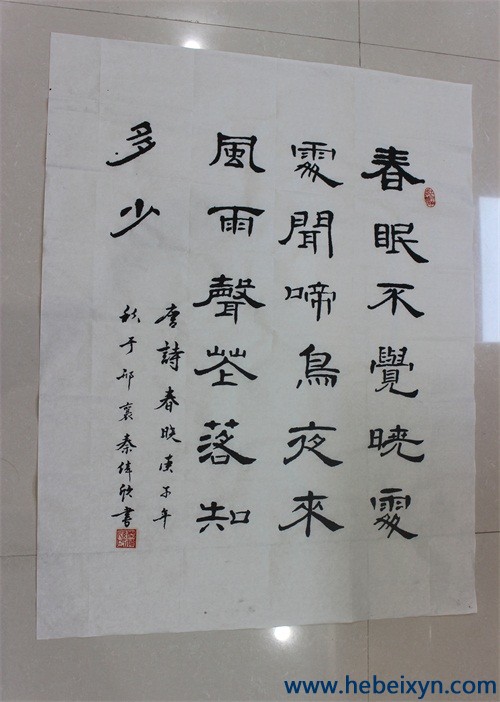 春眠不覺曉處
處聞啼鳥夜來
風雨聲花落知
多少
唐詩春曉庚子年
秋于邢襄秦偉欣書
www.hebeixyn.com